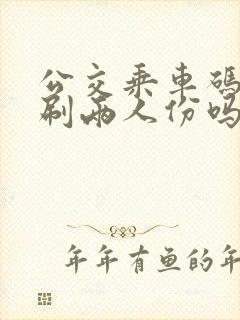 公交乘车码
刷两人份吗
年年有鱼的年